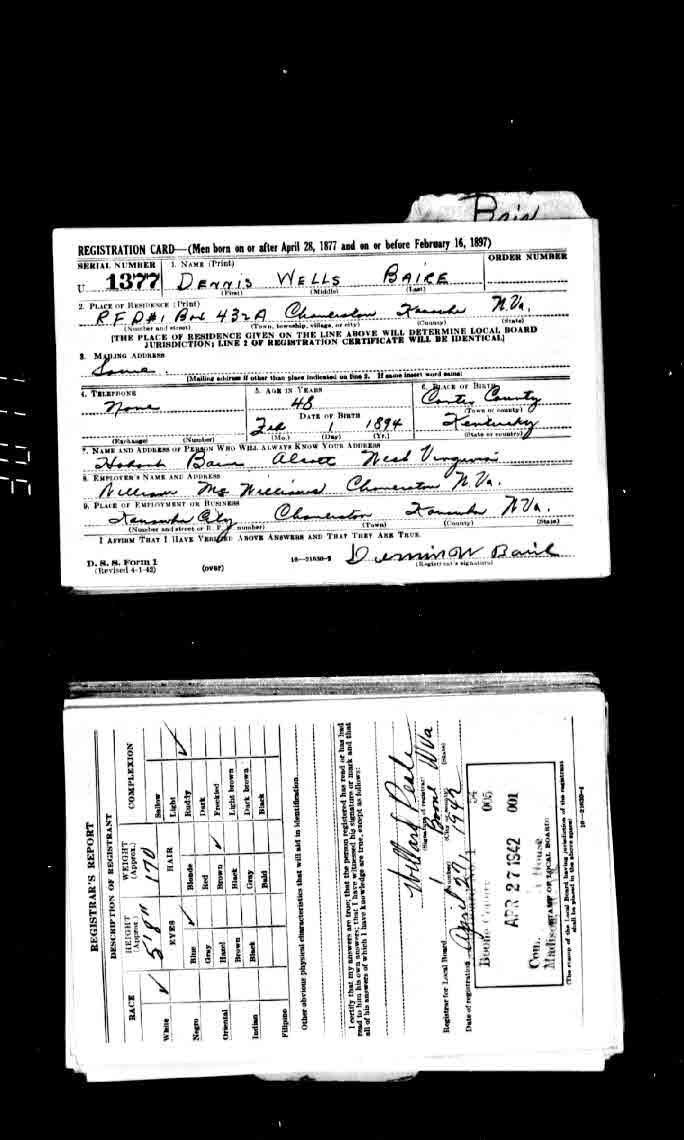 REGISTRATION CARD—(Men born on or after April 28, 1877 and on or before February 16, 1897)
SERIAL NUMBER
1. NAME (Print)
ORDER NUMBER
U 1377
DENNIS WELLS BAIRE
(First) (Middle) (Last)
2. PLACE OF RESIDENCE (Print)
R F D #1 Box 432A Charleston Kanawha W. Va.
(Number and street) (Town, township, village, or city) (County) (State)
[THE PLACE OF RESIDENCE GIVEN ON THE LINE ABOVE WILL DETERMINE LOCAL BOARD
JURISDICTION; LINE 2 OF REGISTRATION CERTIFICATE WILL BE IDENTICAL]
3. MAILING ADDRESS
Same
[Mailing address if other than place indicated on line 2. If same insert word same]
4. TELEPHONE
5. AGE IN YEARS
6. PLACE OF BIRTH
None
48
Carter County
(Town or county)
DATE OF BIRTH
Feb 1 1894
Kentucky
(Exchange) (Number)
(Mo.) (Day) (Yr.)
(State or country)
7. NAME AND ADDRESS OF PERSON WHO WILL ALWAYS KNOW YOUR ADDRESS
West Virginia
8. EMPLOYER'S NAME AND ADDRESS
William Mc Williams Charleston W. Va.
9. PLACE OF EMPLOYMENT OR BUSINESS
Kanawha City Charleston Kanawha W Va.
(Number and street or R. F. D. number) (Town) (County) (State)
I AFFIRM THAT I HAVE VERIFIED ABOVE ANSWERS AND THAT THEY ARE TRUE.
D. S. S. Form 1
(Revised 4-1-42)
(over)
16—21630-2
(Registrant's signature)
REGISTRAR'S REPORT
DESCRIPTION OF REGISTRANT
RACE
HEIGHT (Approx.)
WEIGHT (Approx.)
COMPLEXION
5'8"
170
White
EYES
HAIR
Sallow
Light
Negro
Blue
Blonde
Ruddy
Gray
Red
Dark
Oriental
Hazel
Brown
Freckled
Brown
Black
Light brown
Indian
Black
Gray
Dark brown
Filipino
Bald
Black
Other obvious physical characteristics that will aid in identification
I certify that my answers are true; that the person registered has read or has had
read to him his own answers; that I have witnessed his signature or mark and that
all of his answers of which I have knowledge are true, except as follows:
Willard
(Signature of registrar)
Registrar for Local Board 1 Boone W Va
(Number) (City or county) (State)
Date of registration April 27 1942
Boone County
005
APR 27 1942
001
(STAMP OF LOCAL BOARD)
(The stamp of the Local Board having jurisdiction of the registrant
shall be placed in the above space)